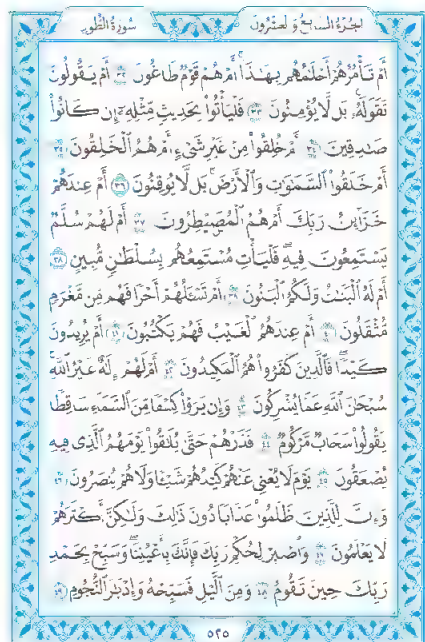 الجزء السابع والعشرون سورة الطور
أَمْ تَأْمُرُهُمْ أَحْلَٰمُهُم بِهَٰذَآ أَمْ هُمْ قَوْمٌ طَاغُونَ ٣٢ أَمْ يَقُولُونَ
تَقَوَّلَهُۥ بَل لَّا يُؤْمِنُونَ ٣٣ فَلْيَأْتُوا۟ بِحَدِيثٍ مِّثْلِهِۦٓ إِن كَانُوا۟
صَٰدِقِينَ ٣٤ أَمْ خُلِقُوا۟ مِنْ غَيْرِ شَىْءٍ أَمْ هُمُ ٱلْخَٰلِقُونَ ٣٥
أَمْ خَلَقُوا۟ ٱلسَّمَٰوَٰتِ وَٱلْأَرْضَ بَل لَّا يُوقِنُونَ ٣٦ أَمْ عِندَهُمْ
خَزَآئِنُ رَبِّكَ أَمْ هُمُ ٱلْمُصَۣيْطِرُونَ ٣٧ أَمْ لَهُمْ سُلَّمٌ
يَسْتَمِعُونَ فِيهِ فَلْيَأْتِ مُسْتَمِعُهُم بِسُلْطَٰنٍ مُّبِينٍ ٣٨
أَمْ لَهُ ٱلْبَنَٰتُ وَلَكُمُ ٱلْبَنُونَ ٣٩ أَمْ تَسْـَٔلُهُمْ أَجْرًا فَهُم مِّن مَّغْرَمٍ
مُّثْقَلُونَ ٤٠ أَمْ عِندَهُمُ ٱلْغَيْبُ فَهُمْ يَكْتُبُونَ ٤١ أَمْ يُرِيدُونَ
كَيْدًا فَٱلَّذِينَ كَفَرُوا۟ هُمُ ٱلْمَكِيدُونَ ٤٢ أَمْ لَهُمْ إِلَٰهٌ غَيْرُ ٱللَّهِ
سُبْحَٰنَ ٱللَّهِ عَمَّا يُشْرِكُونَ ٤٣ وَإِن يَرَوْا۟ كِسْفًا مِّنَ ٱلسَّمَآءِ سَاقِطًا
يَقُولُوا۟ سَحَابٌ مَّرْكُومٌ ٤٤ فَذَرْهُمْ حَتَّىٰ يُلَٰقُوا۟ يَوْمَهُمُ ٱلَّذِى فِيهِ
يُصْعَقُونَ ٤٥ يَوْمَ لَا يُغْنِى عَنْهُمْ كَيْدُهُمْ شَيْـًٔا وَلَا هُمْ يُنصَرُونَ ٤٦
وَإِنَّ لِلَّذِينَ ظَلَمُوا۟ عَذَابًا دُونَ ذَٰلِكَ وَلَٰكِنَّ أَكْثَرَهُمْ
لَا يَعْلَمُونَ ٤٧ وَٱصْبِرْ لِحُكْمِ رَبِّكَ فَإِنَّكَ بِأَعْيُنِنَا وَسَبِّحْ بِحَمْدِ
رَبِّكَ حِينَ تَقُومُ ٤٨ وَمِنَ ٱلَّيْلِ فَسَبِّحْهُ وَإِدْبَٰرَ ٱلنُّجُومِ ٤٩
٥٢٥